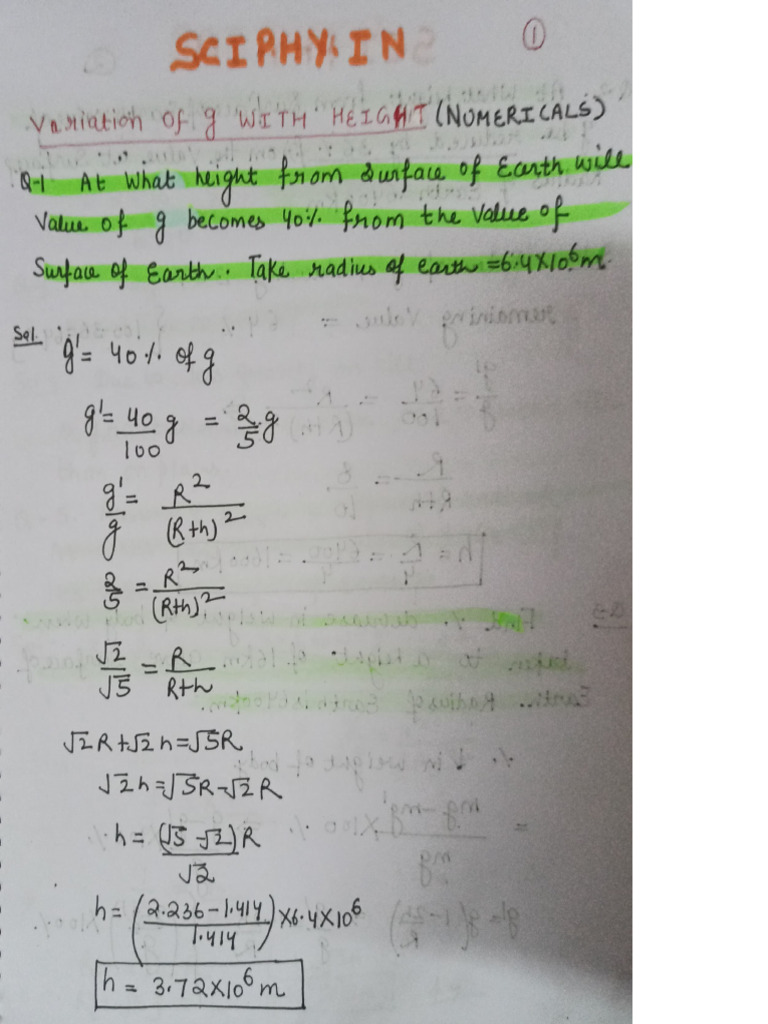 SCIPHY.IN
①
Variation of g WITH HEIGHT (NUMERICALS)
Q-1 At What height from surface of Earth will
Value of g becomes 40% from the Value of
Surface of Earth. Take radius of earth = 6.4X10⁶m.
Sol. g' = 40% of g
g' = 40/100 g = 2/5 g
g'/g = R²/(R+h)²
2/5 = R²/(R+h)²
√2/√5 = R/R+h
√2R+√2h=√5R
√2h=√5R-√2R
h = (√5-√2)R/√2
h = (2.236-1.414/1.414)X6.4X10⁶
h = 3.72X10⁶ m